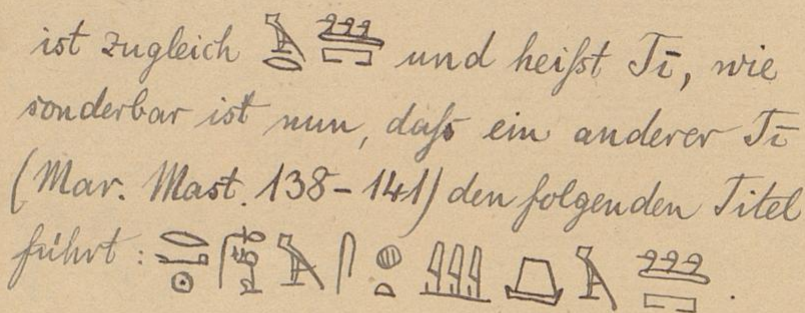 ist zugleich und heißt Tī, wie
sonderbar ist nun, daß ein anderer Tī
(Mar. Mast. 138–141) den folgenden Titel
führt: .